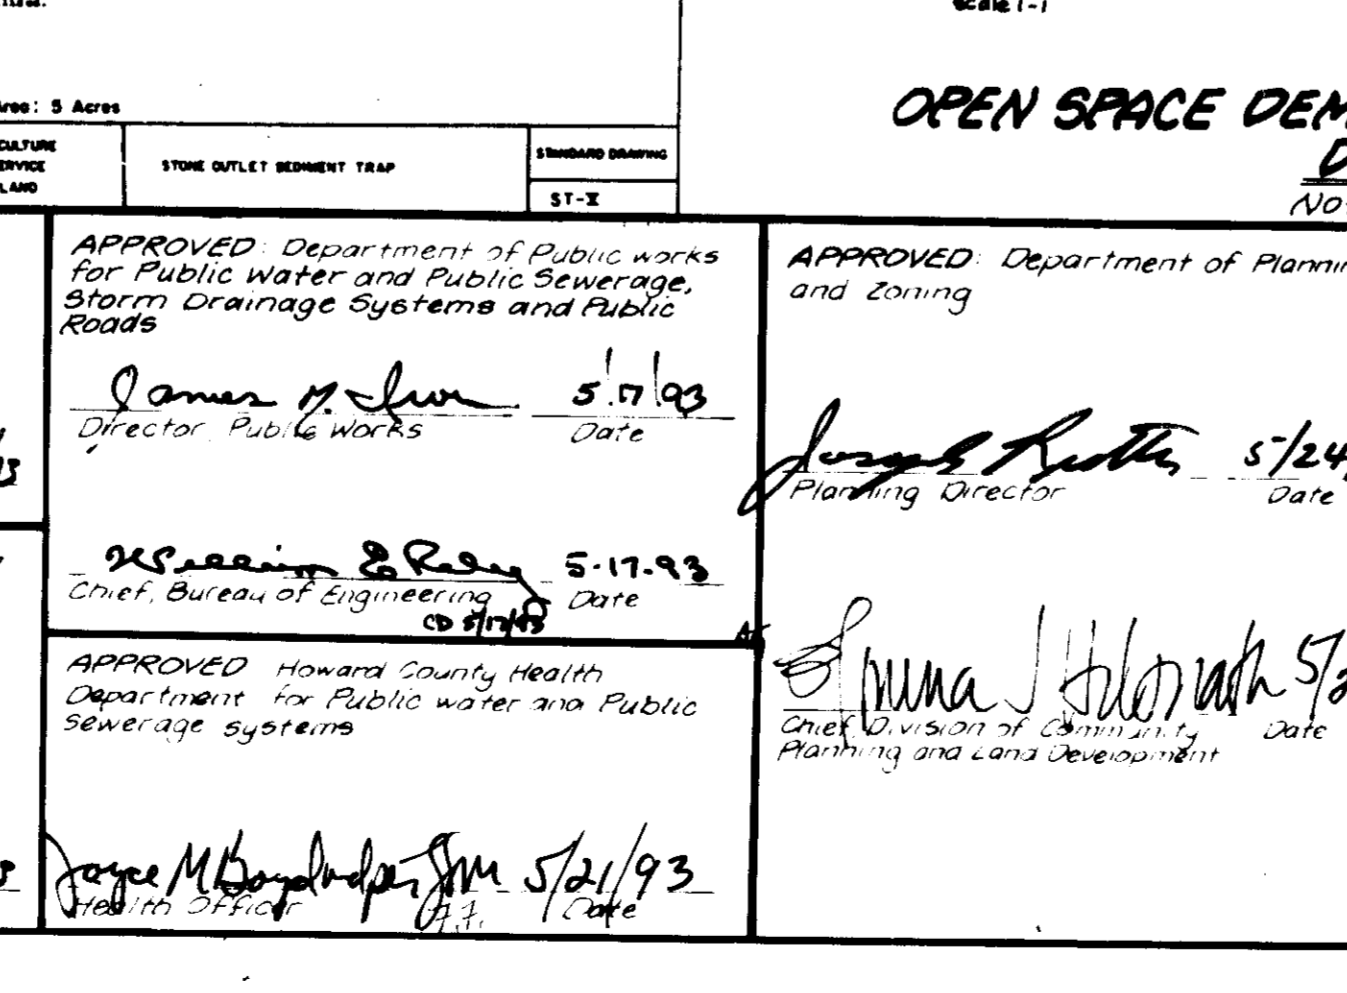 Scale 1-1
Area: 5 Acres
OPEN SPACE DEM
CULTURE
ERVICE
LAND
STONE OUTLET SEDIMENT TRAP
STANDARD DRAWING
ST-X
NO
APPROVED: Department of Public works
for Public Water and Public Sewerage,
Storm Drainage Systems and Public
Roads
James M. Irvin 5/17/93
Director, Public Works Date
William E Riley 5-17-93
Chief, Bureau of Engineering Date
CD 5/17/93
APPROVED Howard County Health
Department for Public water and Public
Sewerage systems
Joyce M Boyd 5/21/93
Health Officer Date
APPROVED: Department of Planni
and Zoning
Joseph Rutter 5/24
Planning Director Date
5/2
Chief, Division of Community Date
Planning and Land Development